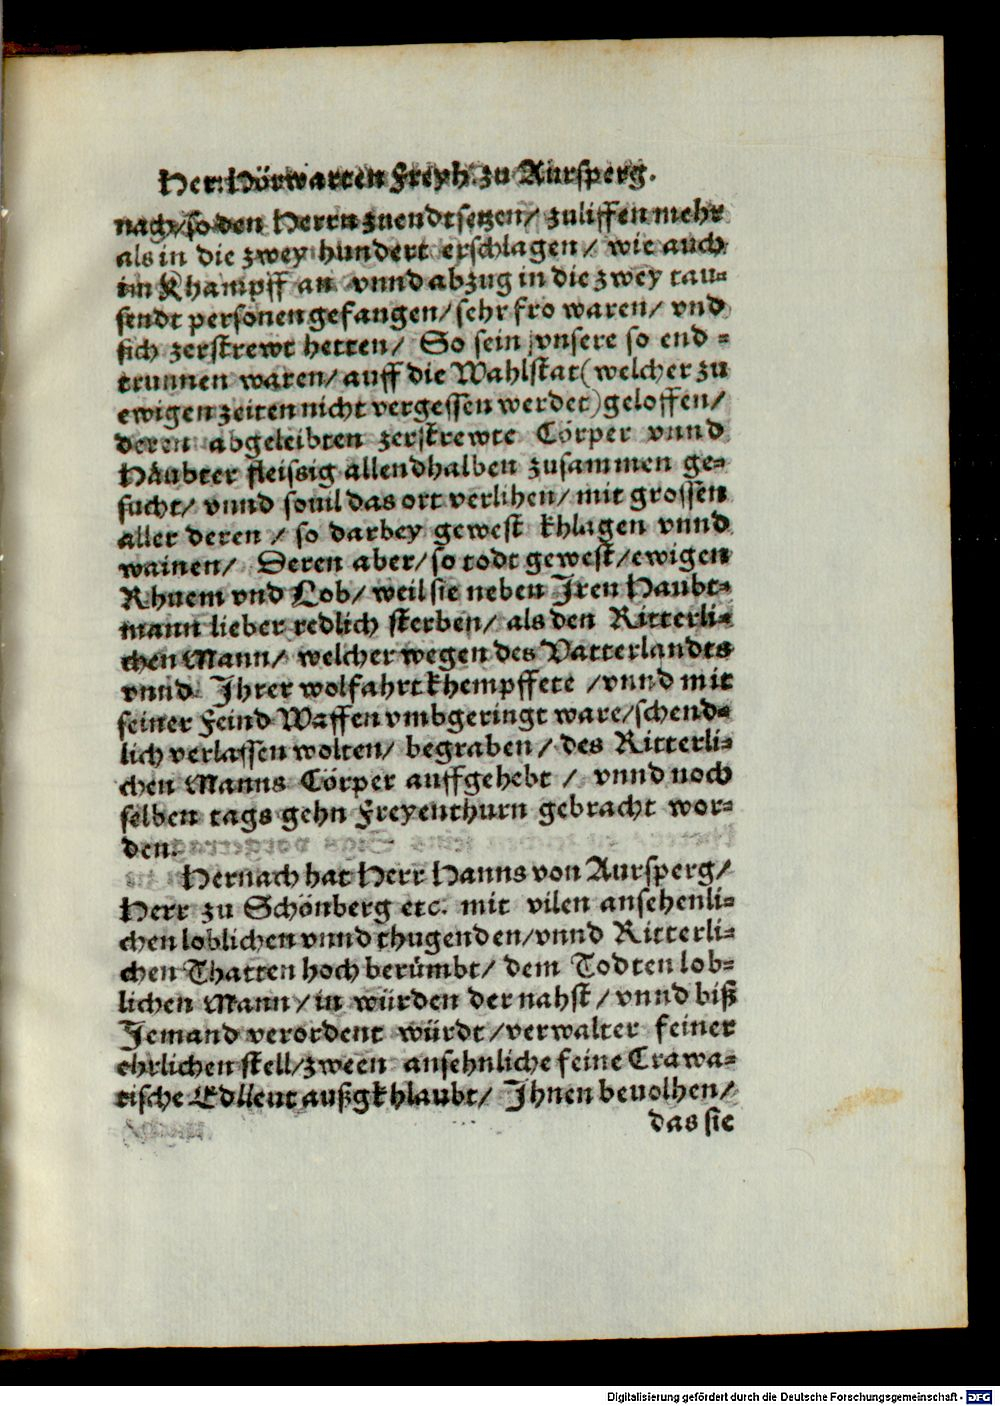 Her: Hörwarten Freyh. zu Aursperg.
nach/ so den Herrn zuendtsetzen/ zuliffen mehr
als in die zwey hundert erschlagen/ wie auch
im Khampff an vnnd abzug in die zwey tau-
sendt personen gefangen/ sehr fro waren/ vnd
sich zerstrewt hetten/ So sein vnsere so end-
trunnen waren/ auff die Wahlstat (welcher zu
ewigen zeiten nicht vergessen werdet) geloffen/
deren abgeleibten zerstrewte Cörper vnnd
Häubter fleissig allendhalben zusammen ge-
sucht/ vnnd souil das ort verlihen/ mit grossen
aller deren / so darbey gewest khlagen vnnd
wainen/ Deren aber/ so todt gewest/ ewigen
Rhuem vnd Lob/ weil sie neben Iren Haubt-
mann lieber redlich sterben/ als den Ritterli-
chen Mann/ welcher wegen des Vatterlandts
vnnd Ihrer wolfahrt khempffete / vnnd mit
seiner Feind Waffen vmbgeringt ware/ schend-
lich verlassen wolten/ begraben/ des Ritterli-
chen Manns Cörper auffgehebt / vnnd noch
selben tags gehn Freyenthurn gebracht wor-
den.
Hernach hat Herr Hanns von Aursperg/
Herr zu Schönberg etc. mit vilen ansehenli-
chen loblichen vnnd thugenden/ vnnd Ritterli-
chen Thatten hoch berümbt/ dem Todten lob-
lichen Mann/ in würden der nahst/ vnnd biß
Jemand verordent würdt/ verwalter seiner
ehrlichen stell/ zween ansehnliche feine Crawa-
tische Edlleut außgkhlaubt/ Ihnen beuolhen/
das sie
Digitalisierung gefördert durch die Deutsche Forschungsgemeinschaft - DFG